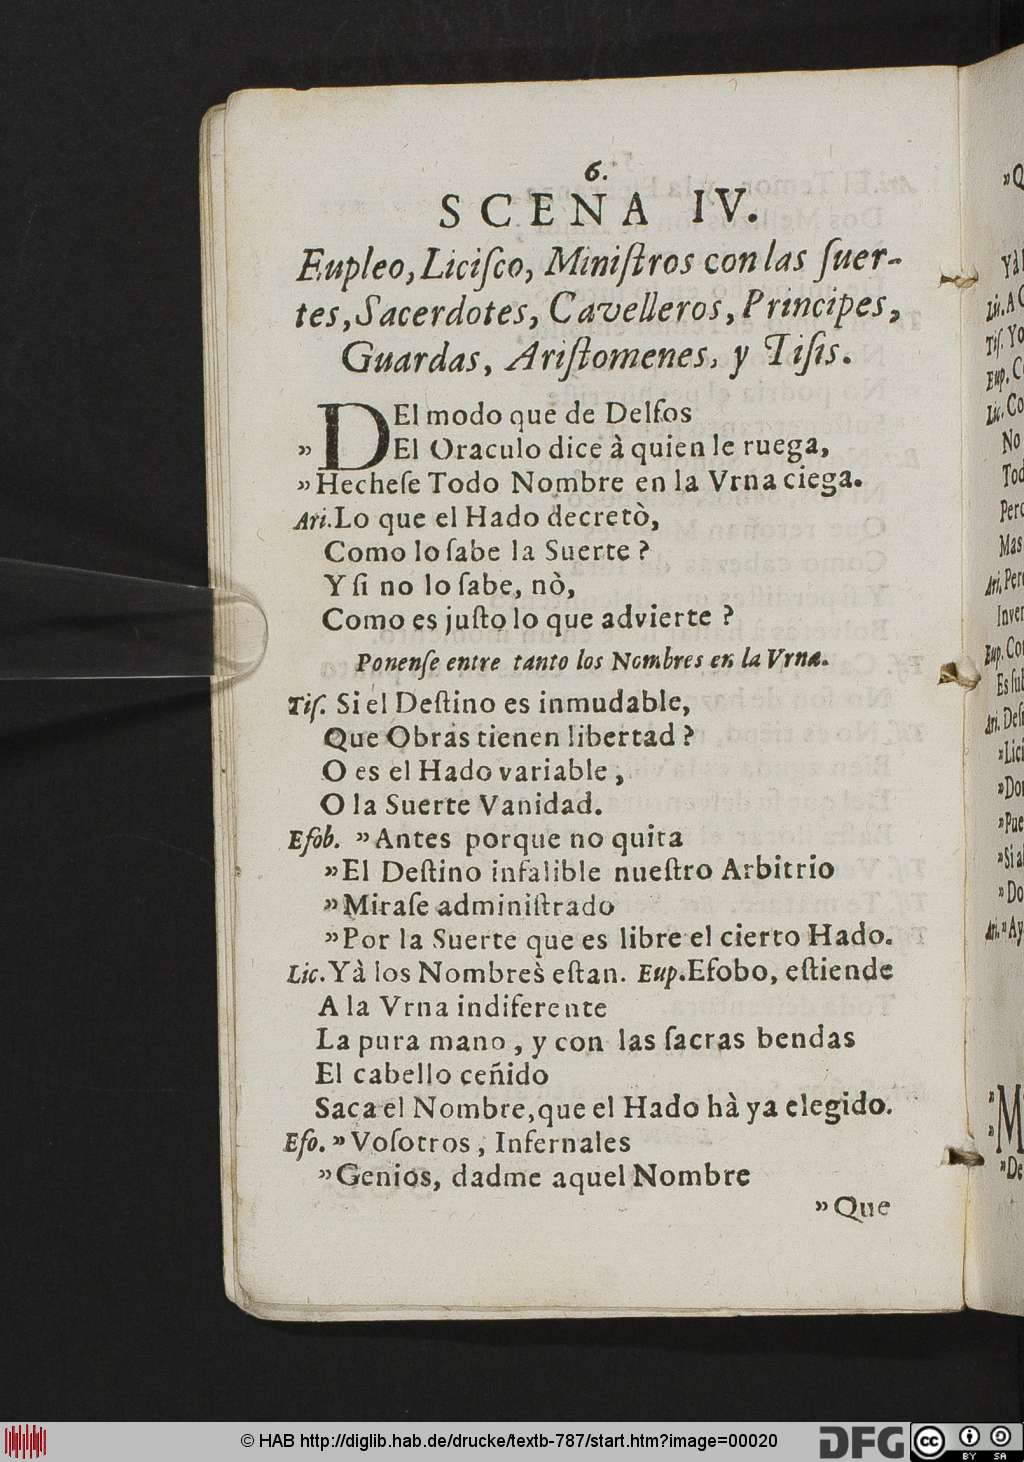 6.
SCENA IV.
Eupleo, Liciſco, Miniſtros con las ſuer-
tes, Sacerdotes, Cavelleros, Principes,
Guardas, Ariſtomenes, y Tiſis.
DEl modo que de Delfos
» El Oraculo dice à quien le ruega,
» Hecheſe Todo Nombre en la Vrna ciega.
Ari. Lo que el Hado decretò,
Como lo ſabe la Suerte ?
Y ſi no lo ſabe, nò,
Como es juſto lo que advierte ?
Ponenſe entre tanto los Nombres en la Vrna.
Tiſ. Si el Deſtino es inmudable,
Que Obras tienen libertad ?
O es el Hado variable ,
O la Suerte Vanidad.
Efob. » Antes porque no quita
» El Deſtino infalible nueſtro Arbitrio
» Miraſe adminiſtrado
» Por la Suerte que es libre el cierto Hado.
Lic. Yà los Nombres̀ eſtan. Eup. Efobo, eſtiende
A la Vrna indiferente
La pura mano , y con las ſacras bendas
El cabello ceñido
Saca el Nombre, que el Hado hà ya elegido.
Efo. » Voſotros , Infernales
» Genios, dadme aquel Nombre
» Que
» Q
Yà
Lic. A
Tiſ. Yo
Eup. C
Lic. Co
No
Tod
Perc
Mas
Ari. Per
Inver
Eup. Con
Es ſub
Ari. Deſ
» Lici
» Don
» Pue
» Si a
» Do
Ari. » Ay
» M
»
» De
© HAB http://diglib.hab.de/drucke/textb-787/start.htm?image=00020
DFG
cc
BY SA